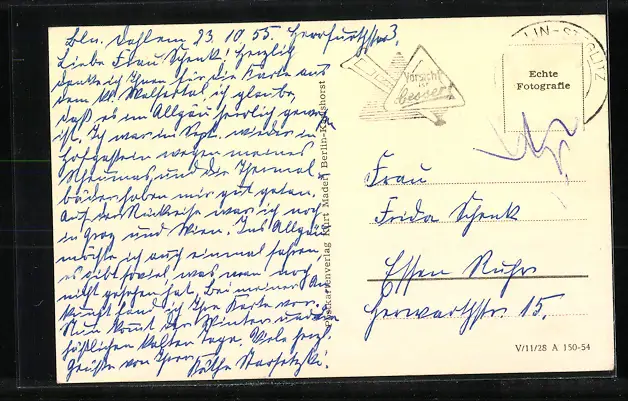 Bln. Dahlem 23 10 55. Herrfurthstr 3.
Liebe Frau Schenk! Herzlich
danke ich Ihnen für die Karte aus
dem kl. Walsertal ich glaube,
daß es im Allgäu herrlich gewesen
ist. Ich war im Sept. wieder in
Hofgastein wegen meines
Rheumas, und die Thermal-
bäder haben mir gut getan.
Auf der Rückreise war ich noch
in Graz und Wien. Ins Allgäu
möchte ich auch einmal fahren,
es gibt soviel, was man noch
nicht gesehen hat. Bei meiner An-
kunft fand ich Ihre Karte vor.
Nun kommt der Winter und die
häßlichen kalten Tage. Viele herzl.
Grüße von Ihrer
Käthe
Postkartenverlag Kurt Mader, Berlin-Karlshorst
Vorsicht
ist
besser!
LIN-STEGLITZ
Echte
Fotografie
Frau
Frida Schenk
Essen Ruhr
Herwarthstr. 15.
V/11/28 A 150-54